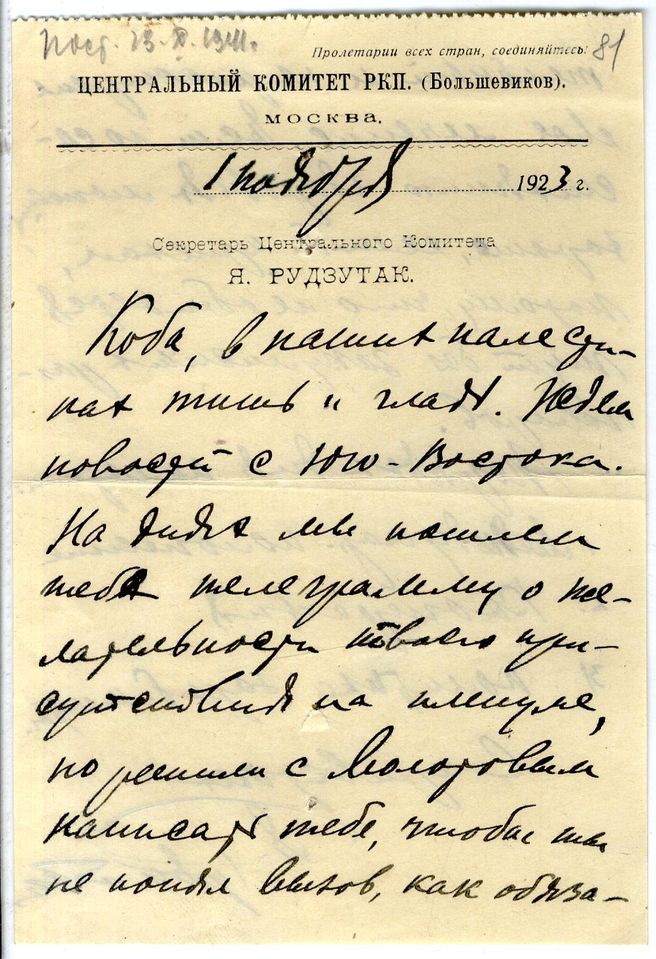 Пост. 23.XI.1941г.
81
Пролетарии всех стран, соединяйтесь!
ЦЕНТРАЛЬНЫЙ КОМИТЕТ РКП. (Большевиков).
МОСКВА.
1 ноября 1923 г.
Секретарь Центрального Комитета
Я. РУДЗУТАК.
Коба, в наших палести-
нах тишь и гладь. Ждем
новостей с Юго-Востока.
На днях мы пошлем
тебе телеграмму о же-
лательности твоего при-
сутствия на пленуме,
но решили с Молотовым
написать тебе, чтобы ты
не понял вызов, как обяза-